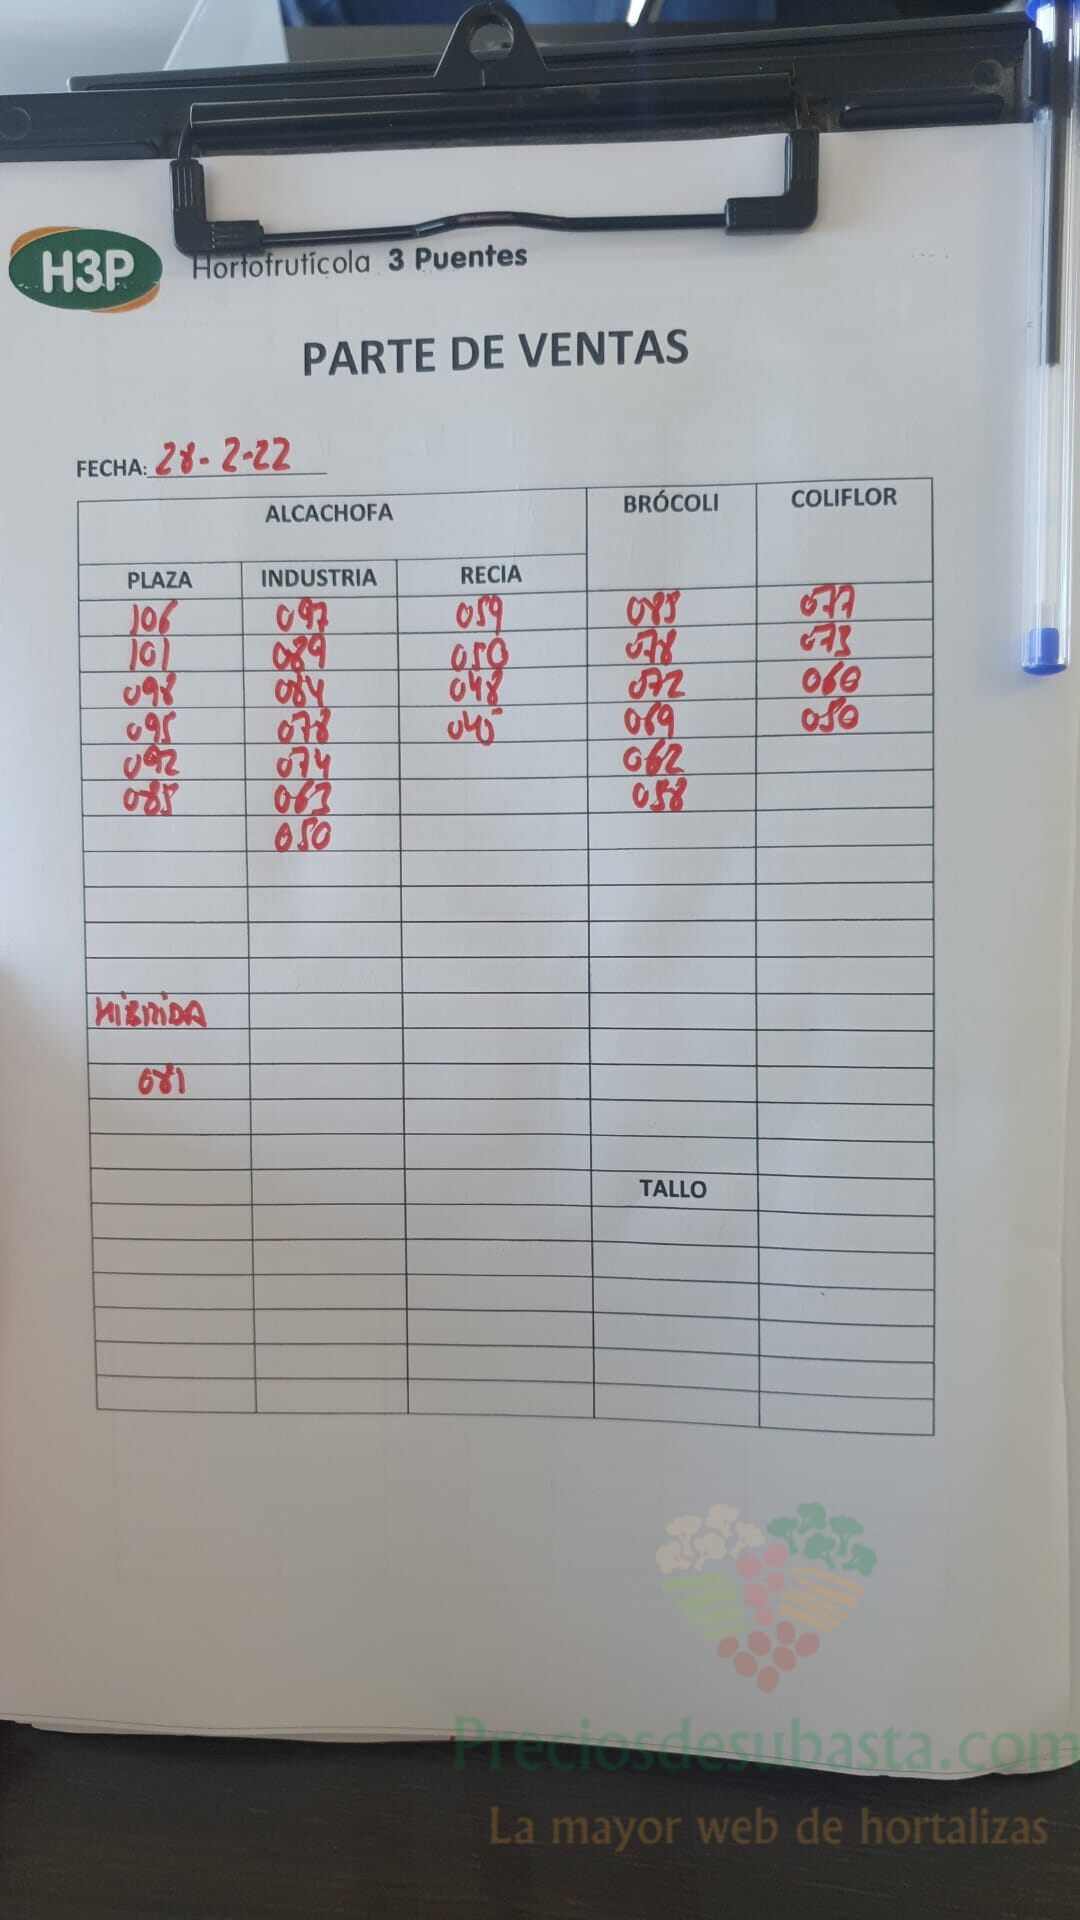 H3P Hortofrutícola 3 Puentes
PARTE DE VENTAS
FECHA: 28-2-22
ALCACHOFA BRÓCOLI COLIFLOR
PLAZA INDUSTRIA RECIA
106 097 059 085 077
101 089 050 078 073
098 084 048 072 060
095 078 045 069 050
092 074 062
085 063 058
050
HIBRIDA
081
TALLO
Preciosdesubasta.com
La mayor web de hortalizas